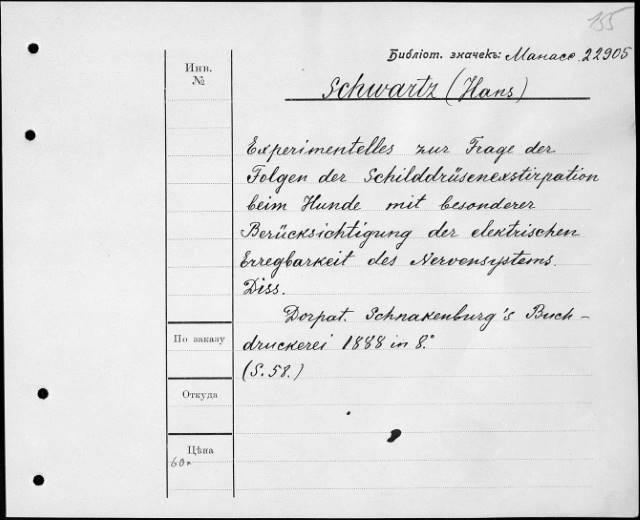 155
Библіот. значекъ: Манасс. 22905
Инв.
№
Schwartz (Hans)
Experimentelles zur Frage der
Folgen der Schilddrüsenexstirpation
beim Hunde mit besonderer
Berücksichtigung der elektrischen
Erregbarkeit des Nervensystems.
Diss.
Dorpat. Schnakenburg's Buch-
druckerei 1888 in 8.°
(S. 58.)
По заказу
Откуда
Цѣна
60к